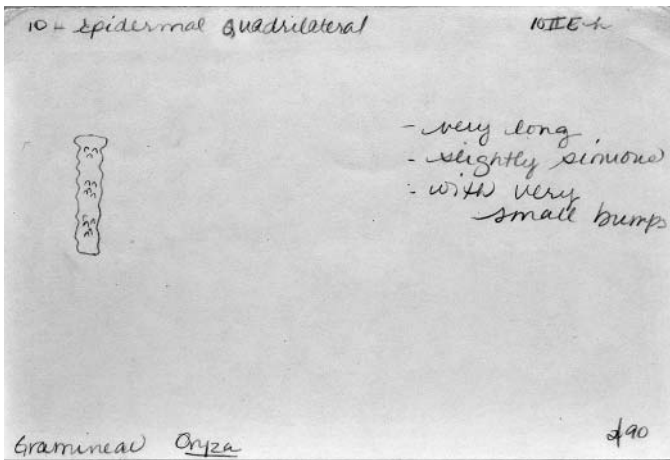 10 - Epidermal Quadrilateral 10IIE-h
- very long
- slightly sinuous
- with very
small bumps
Gramineae Oryza
2/90